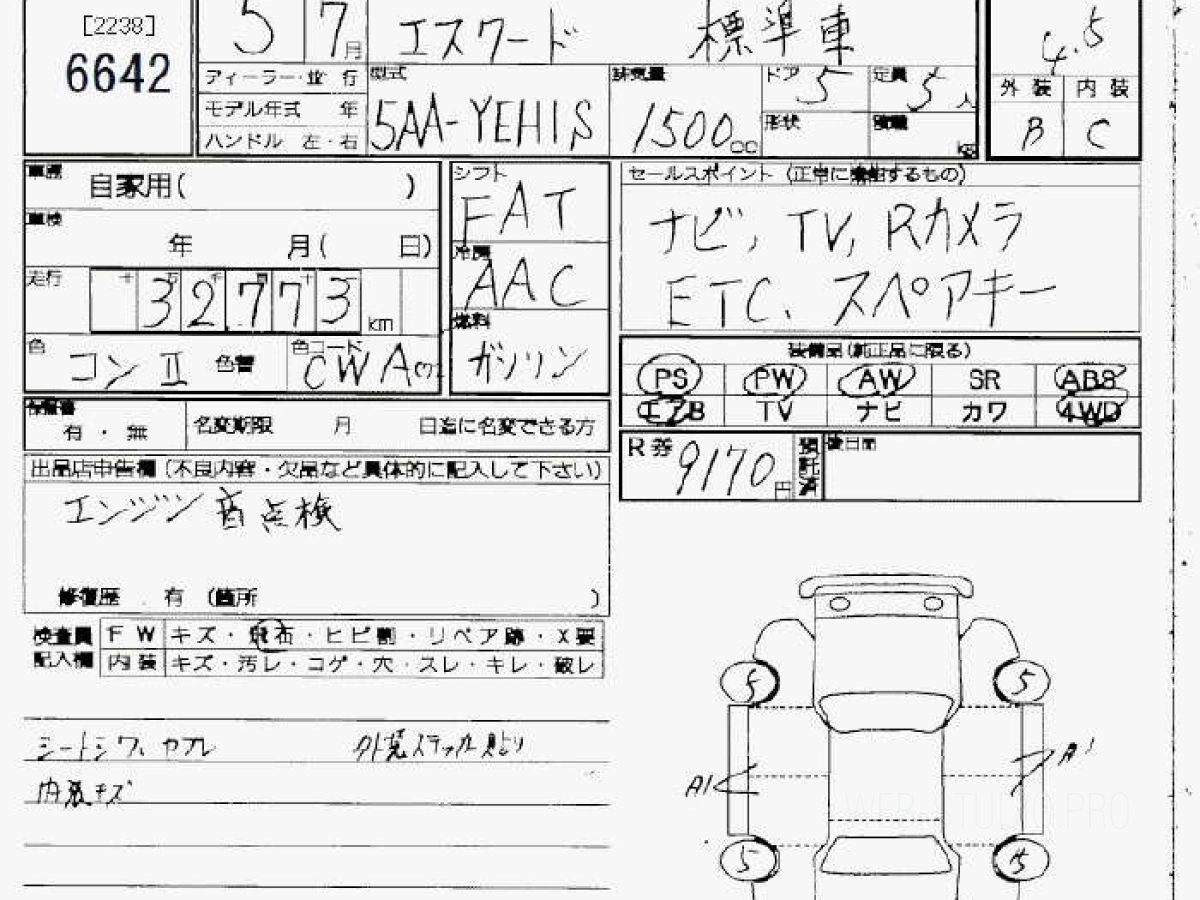 [2238]
6642
5 7月 エスクード 標準車 4.5
ディーラー・並行
モデル年式 年
ハンドル 左・右
型式 5AA-YEH1S
排気量 1500cc
ドア 5 定員 5人
形状 積載 kg
外装 内装
B C
車歴 自家用( )
車検 年 月( 日)
走行 32,773 km
色 コンⅡ 色替 色コード CWA
シフト FAT
冷房 AAC
燃料 ガソリン
セールスポイント (正常に機能するもの)
ナビ, TV, Rカメラ
ETC、スペアキー
装備品(純正品に限る)
PS PW AW SR ABS
エアB TV ナビ カワ 4WD
保証書 有・無 名変期限 月 日迄に名変できる方
R券 9170円 預託済 後日間
出品店申告欄(不良内容・欠品など具体的に記入して下さい)
エンジン音点検
修復歴 有 (箇所 )
検査員記入欄
FW キズ・飛石・ヒビ割・リペア跡・X要
内装 キズ・汚レ・コゲ・穴・スレ・キレ・破レ
シートシワ、ヤブレ 外装ステッカー貼り
内装キズ
5 5
A1 A1
5 5
WEB STUDIO.PRO